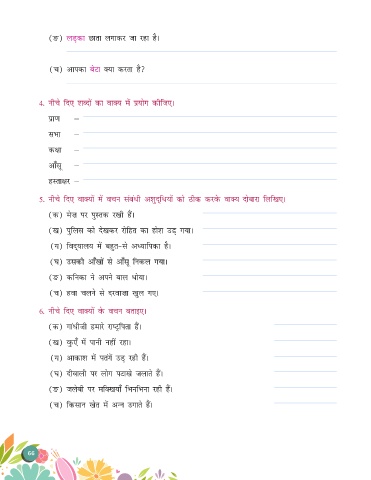 (ङ) लड़का छाता लगाकर जा रहा है।
(च) आपका बेटा क्या करता है?
4. नीचे दिए शब्दों का वाक्य में प्रयोग कीजिए।
प्राण –
सभा –
कक्षा –
आँसू –
हस्ताक्षर –
5. नीचे दिए वाक्यों में वचन संबंधी अशुद्धियों को ठीक करके वाक्य दोबारा लिखिए।
(क) मेज़ पर पुस्तक रखी हैं।
(ख) पुलिस को देखकर रोहित का होश उड़ गया।
(ग) विद्यालय में बहुत-से अध्यापिका है।
(घ) उसकी आँखों से आँसू निकल गया।
(ङ) कनिका ने अपने बाल धोया।
(च) हवा चलने से दरवाज़ा खुल गए।
6. नीचे दिए वाक्यों के वचन बताइए।
(क) गांधीजी हमारे राष्ट्रपिता हैं।
(ख) कुएँ में पानी नहीं रहा।
(ग) आकाश में पतंगें उड़ रही हैं।
(घ) दीवाली पर लोग पटाखे जलाते हैं।
(ङ) जलेबी पर मक्खियाँ भिनभिना रही हैं।
(च) किसान खेत में अन्न उगाते हैं।
66